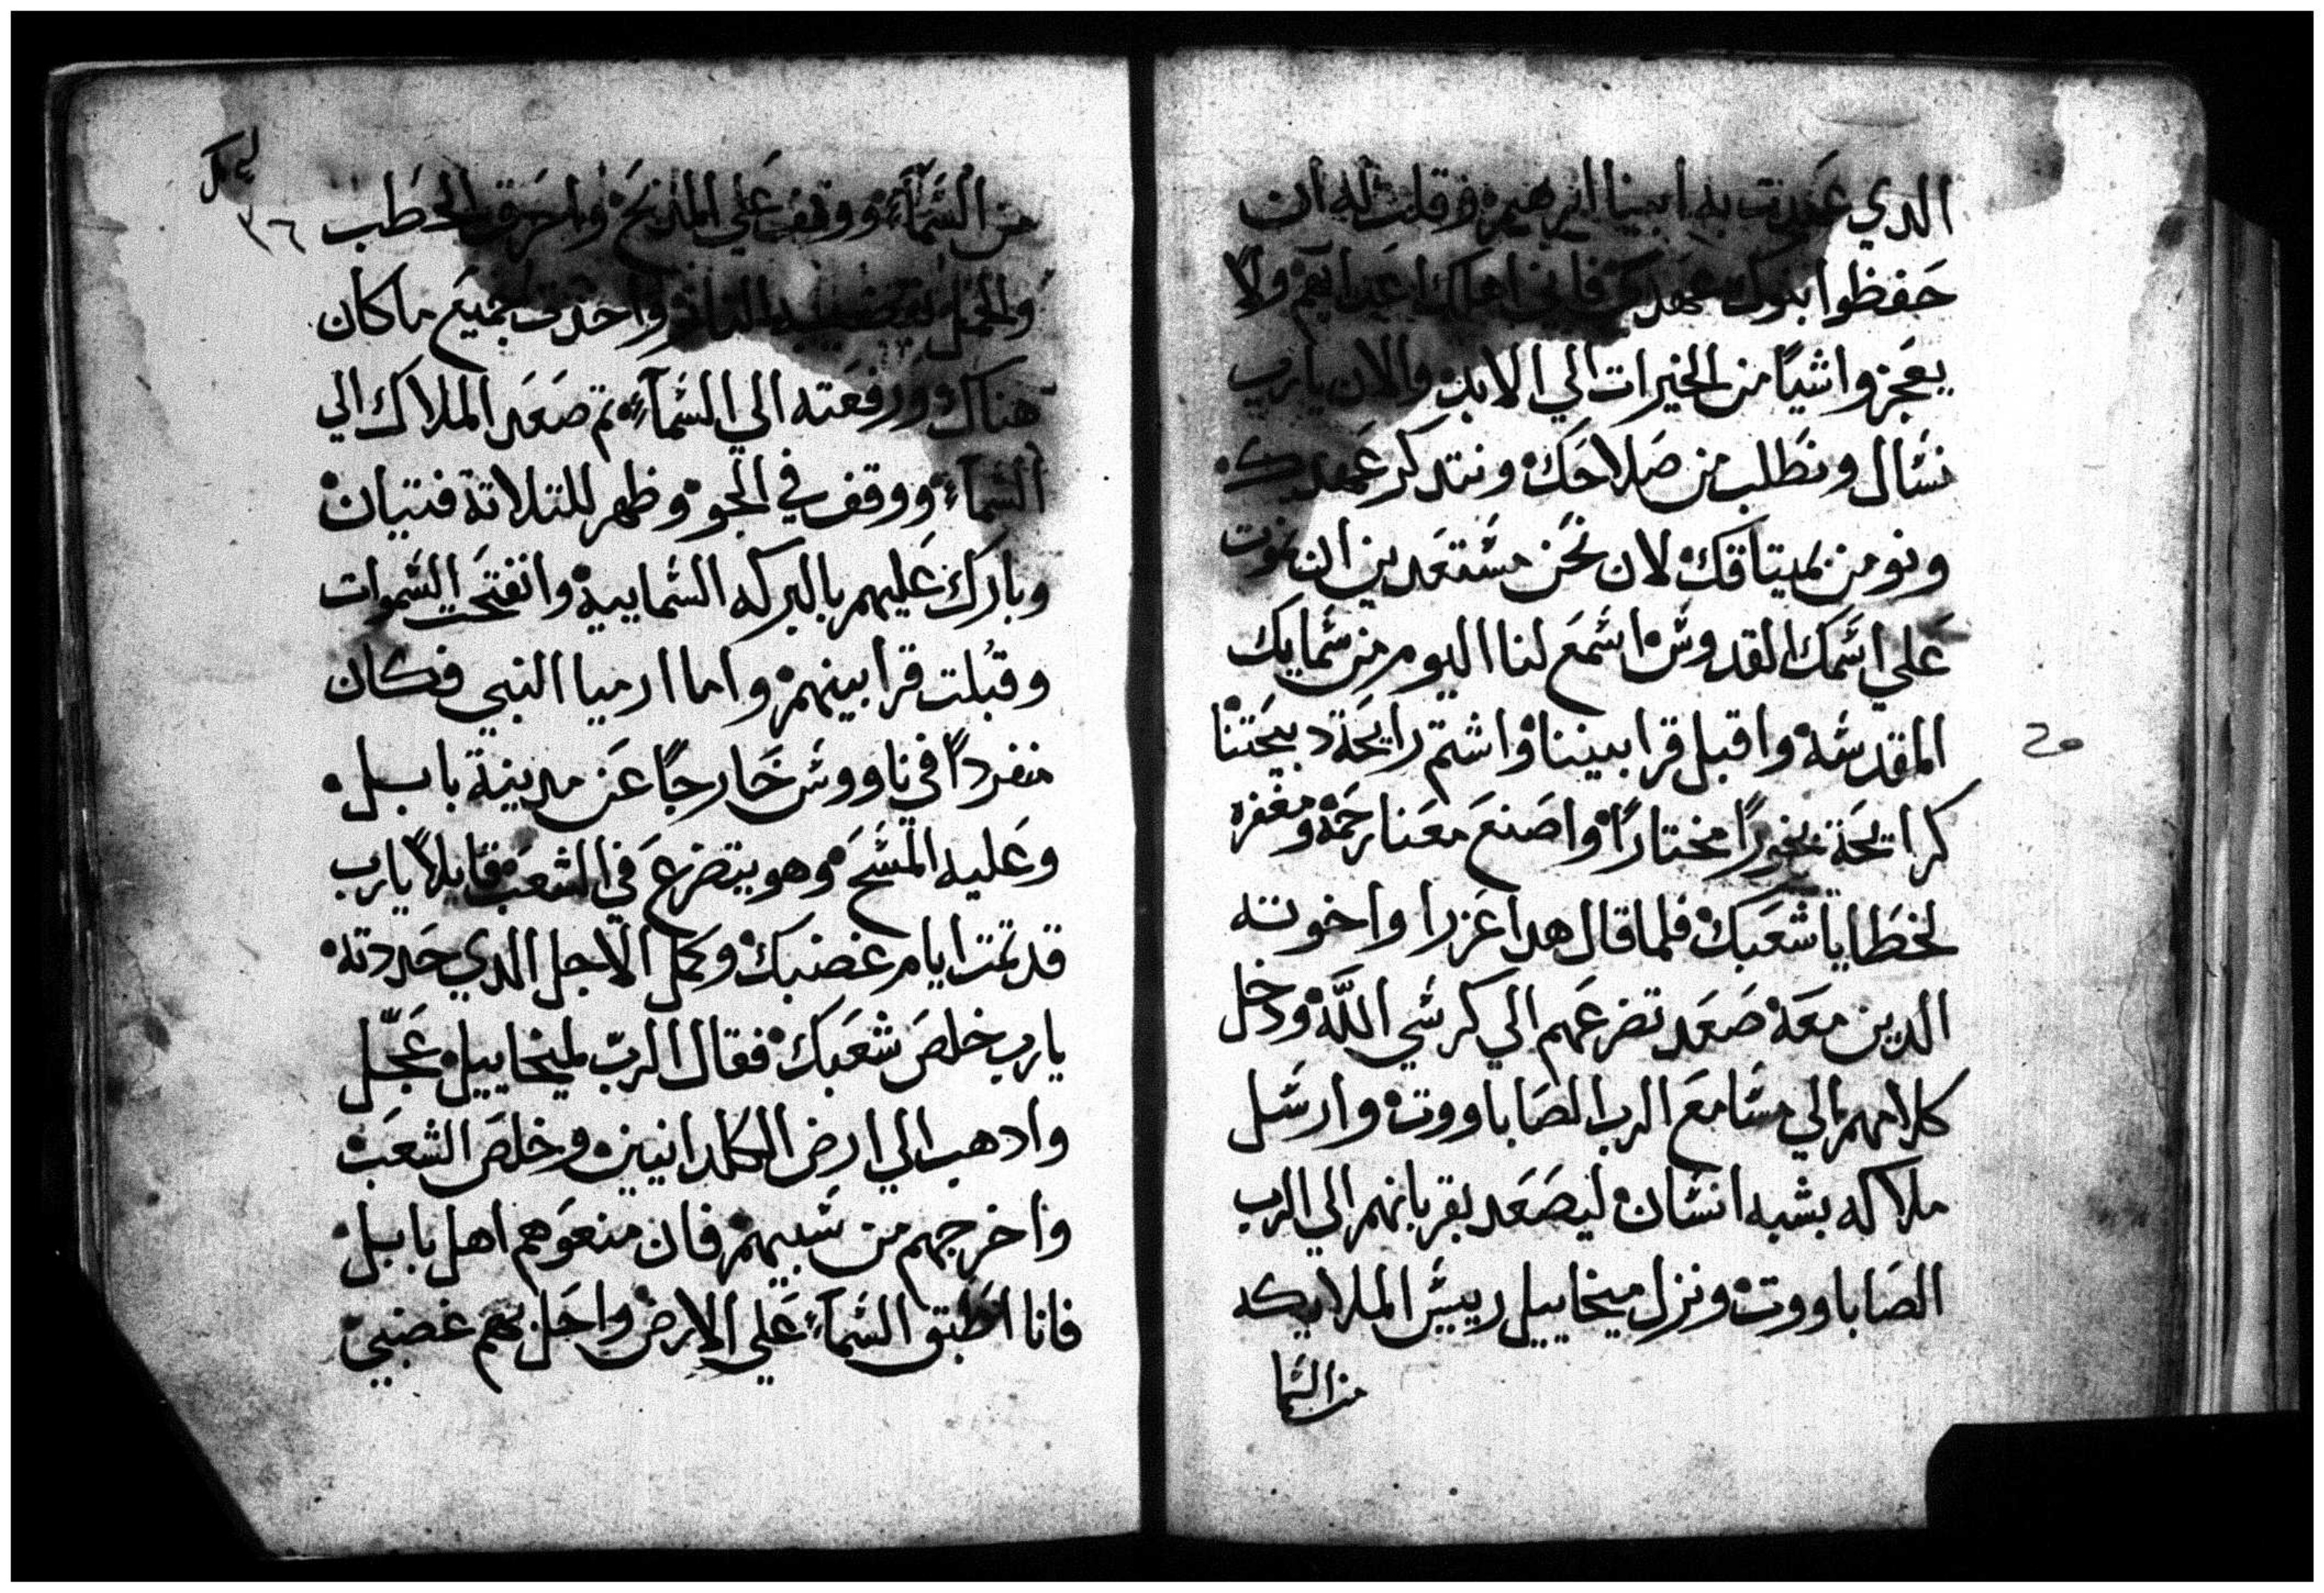 الدي عهدت به ابينا ابرهيم وقلت له ان
حفظوا بنوك عهدي فاني اهلك اعدايهم ولا
يعجزوا شيًا من الخيرات الي الابد والان يارب
نسال ونطلب من صلاحك ونتدكر عهدك
ونومن بميتاقك لان نحن مستعدين ان نموت
علي اسمك القدوس اسمع لنا اليوم من سمايك
المقدسه واقبل قرابيننا واشتم رايحة دبيحتنا
كرايحة بخورًا مختارًا واصنع معنا رحمة ومغفره
لخطايا شعبك فلما قال هدا عزرا واخوته
الدين معه صعد تضرعهم الي كرسي الله ودخل
كلامهم الي مسامع الرب الصاباووت وارسل
ملاكه بشبه انسان ليصعد بقربانهم الي الرب
الصاباووت ونزل ميخاييل رييس الملايكه
من السما
٣٦
من السمآء ووقف علي المدبح واحرق الحطب
والحمل بقضيب النار واخدت جميع ما كان
هناك ورفعته الي السمآء تم صعد الملاك الي
السمآء ووقف في الجو وظهر للتلاتة فتيان
وبارك عليهم بالبركه السماييه وانفتحت السموات
وقبلت قرابينهم واما ارميا النبي فكان
منفردًا في ناووس خارجًا عن مدينة بابل
وعليه المسح وهو يتضرع في الشعب قايلاً يارب
قد تمت ايام غضبك وكمل الاجل الدي حددته
يارب خلص شعبك فقال الرب لميخاييل عجّل
وادهب الي ارض الكلدانيين وخلص الشعب
واخرجهم من سبيهم فان منعوهم اهل بابل
فانا اطبق السمآء علي الارض واحل بهم غضبي